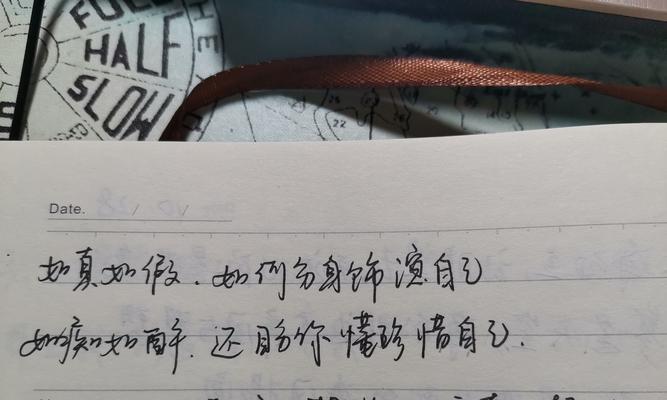 FULL
HALF
SLOW
THE
22
Date.
如真如假.如何分身饰演自己
如痴如醉.还盼你懂珍惜自己.